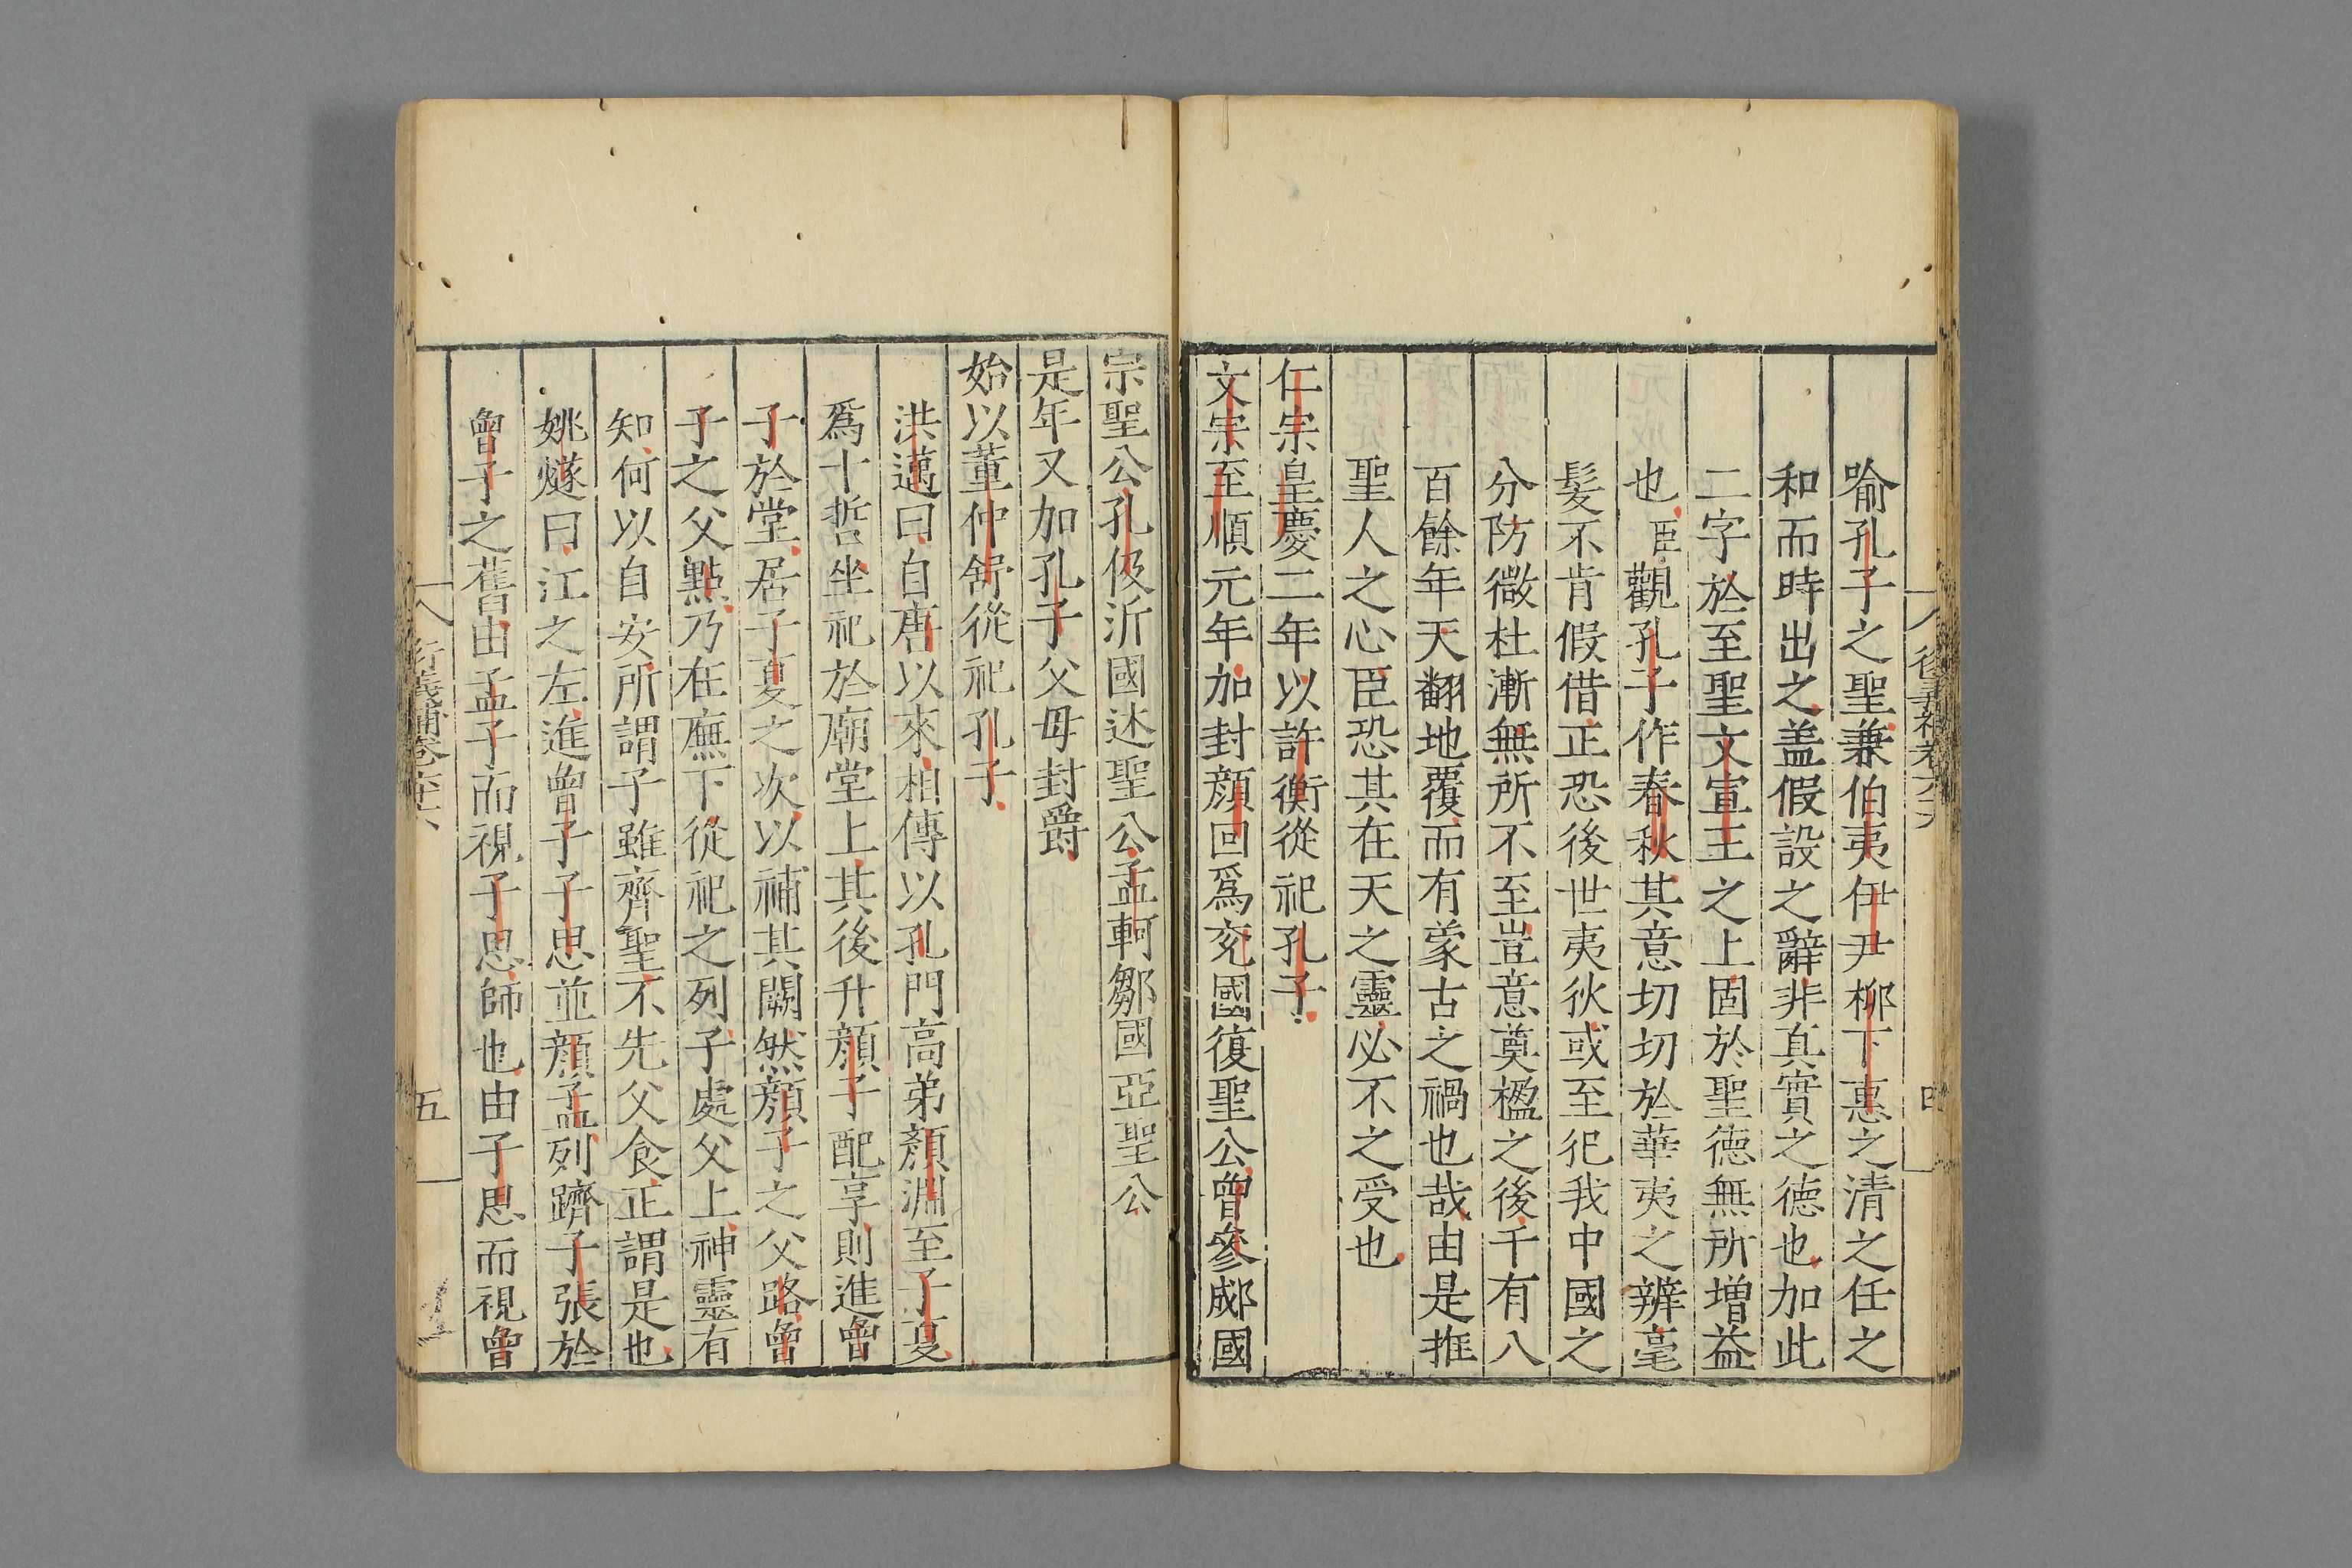 喻孔子之聖兼伯夷伊尹柳下惠之清之任之
和而時出之盖假設之辭非真實之德也加此
二字於至聖文宣王之上固於聖德無所增益
也臣觀孔子作春秋其意切切於華夷之辨毫
髮不肯假借正恐後世夷狄或至犯我中國之
分防微杜漸無所不至豈意奠楹之後千有八
百餘年天翻地覆而有蒙古之禍也哉由是推
聖人之心臣恐其在天之靈必不之受也
仁宗皇慶二年以許衡從祀孔子
文宗至順元年加封顏回爲兖國復聖公曾參郕國
宗聖公孔伋沂國述聖公孟軻鄒國亞聖公
是年又加孔子父母封爵
始以董仲舒從祀孔子
洪邁曰自唐以來相傳以孔門高弟顏淵至子夏
爲十哲坐祀於廟堂上其後升顏子配享則進曾
子於堂居子夏之次以補其闕然顏子之父路曾
子之父點乃在廡下從祀之列子處父上神靈有
知何以自安所謂子雖齊聖不先父食正謂是也
姚燧曰江之左進曾子子思並顏孟列躋子張於
曾子之舊由孟子而視子思師也由子思而視曾
五